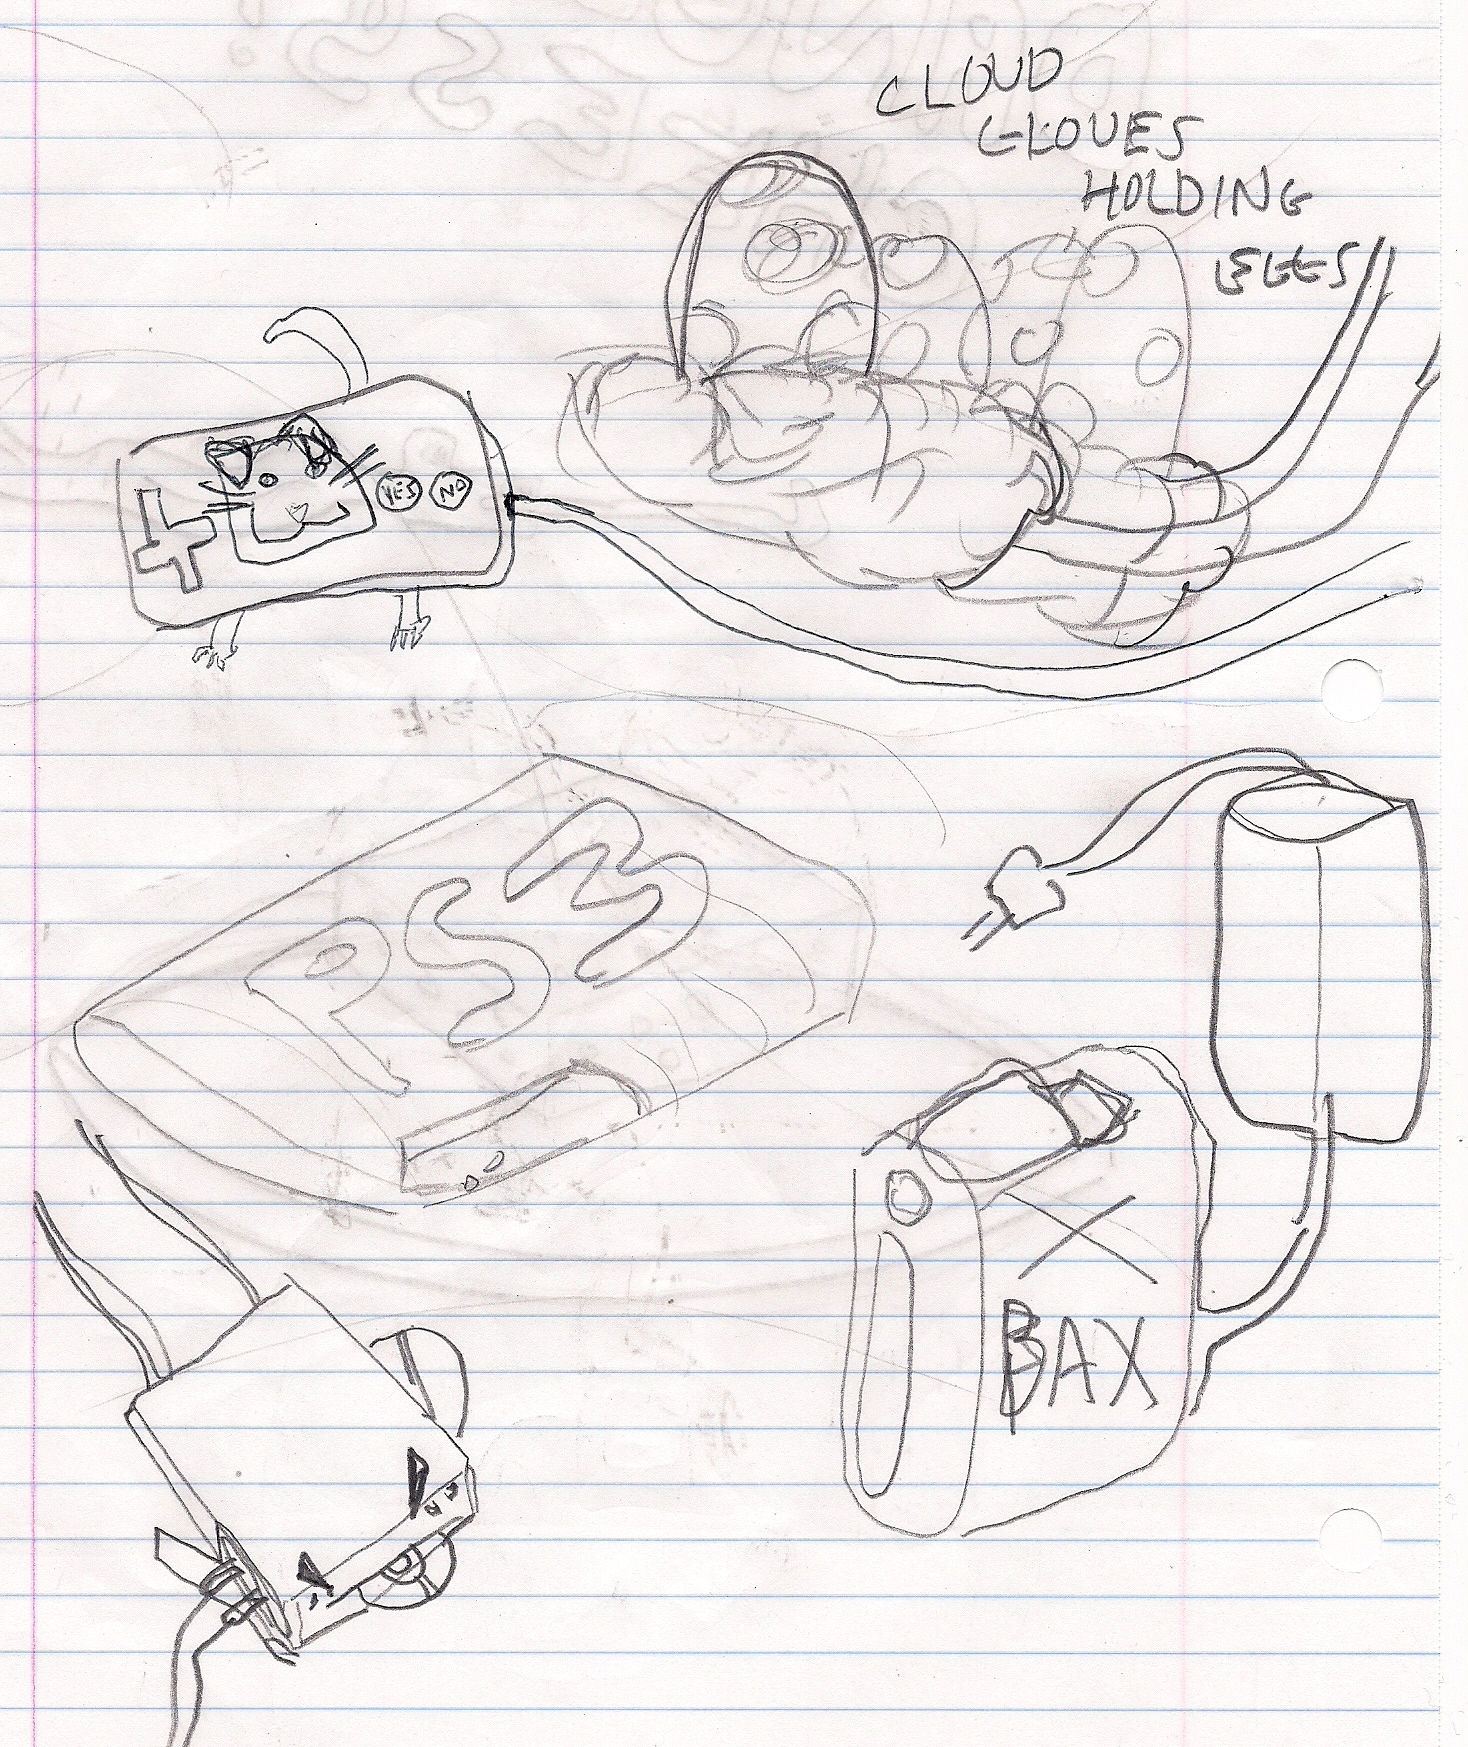 CLOUD
GLOVES
HOLDING
EGGS
YES NO
PS3
X
BAX